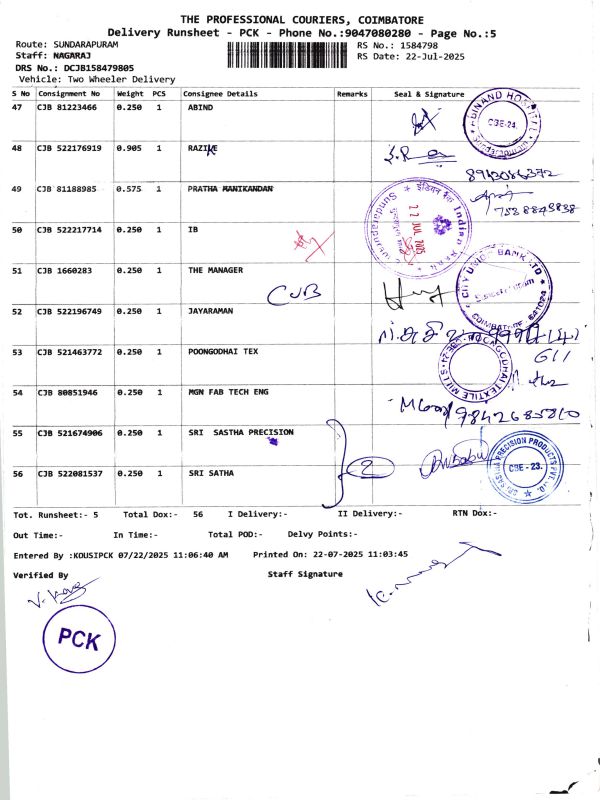 THE PROFESSIONAL COURIERS, COIMBATORE
Delivery Runsheet - PCK - Phone No.:9047080280 - Page No.:5
Route: SUNDARAPURAM
RS No.: 1584798
Staff: NAGARAJ
RS Date: 22-Jul-2025
DRS No.: DCJB158479805
Vehicle: Two Wheeler Delivery
S No Consignment No Weight PCS Consignee Details Remarks Seal & Signature
47 CJB 81223466 0.250 1 ABIND
CBE-24.
48 CJB 522176919 0.905 1 RAZIKE
49 CJB 81188985 0.575 1 PRATHA MANIKANDAN
Indian Bank
22 JUL 2025
50 CJB 522217714 0.250 1 IB
51 CJB 1660283 0.250 1 THE MANAGER
CUB
CITY UNION BANK LTD
COIMBATORE 641024
52 CJB 522196749 0.250 1 JAYARAMAN
53 CJB 521463772 0.250 1 POONGODHAI TEX
POONGODHAI TEXTILE MILLS
54 CJB 80851946 0.250 1 MGN FAB TECH ENG
9842685810
55 CJB 521674906 0.250 1 SRI SASTHA PRECISION
2
SRI SASTHA PRECISION PRODUCTS PVT. LTD.
CBE - 23.
56 CJB 522081537 0.250 1 SRI SATHA
Tot. Runsheet:- 5 Total Dox:- 56 I Delivery:- II Delivery:- RTN Dox:-
Out Time:- In Time:- Total POD:- Delvy Points:-
Entered By :KOUSIPCK 07/22/2025 11:06:40 AM Printed On: 22-07-2025 11:03:45
Verified By Staff Signature
PCK